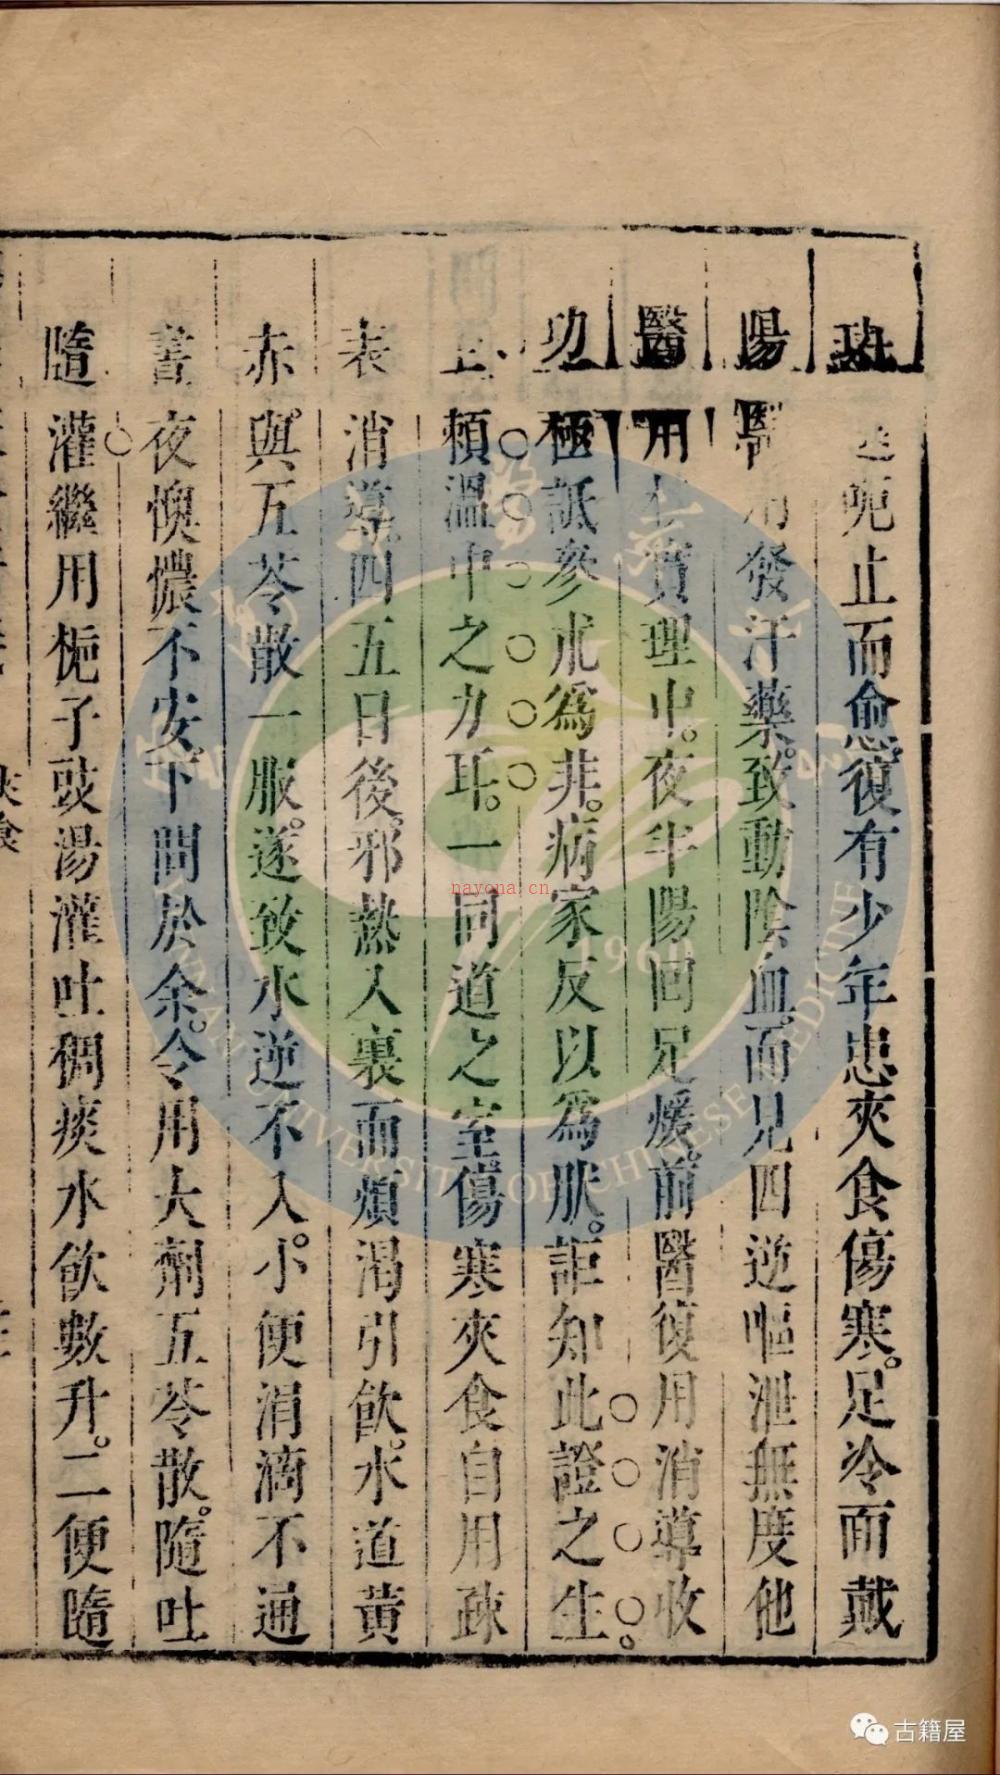 呃止而愈復有少年患夾食傷寒。足冷而戴
陽醫用發汗藥。致動陰血。而見四逆嘔泄無度他
醫用實理中。夜半陽回足煖前醫復用消導收
功極詆參朮為非。病家反以為肰。詎知此證之生
賴溫中之力耳。一同道之室傷寒夾食自用疎
表消導。四五日後。邪熱入裏而煩渴引飲。水道黃
赤。與五苓散一服。遂致水逆不入。小便涓滴不通
晝夜懊憹不安。下問於余。令用大劑五苓散。隨吐
隨灌繼用梔子豉湯灌吐稠痰水飲數升。二便隨
夾食
nayona.cn
1960
YUNNAN UNIVERSITY OF CHINESE MEDICINE
古籍屋